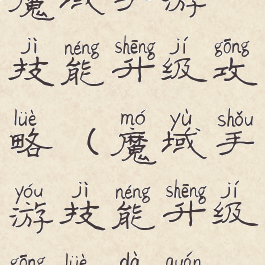 魔域手游
jì néng shēng jí gōng
技能升级攻
lüè mó yù shǒu
略（魔域手
yóu jì néng shēng jí
游技能升级
gōng lüè dà quán